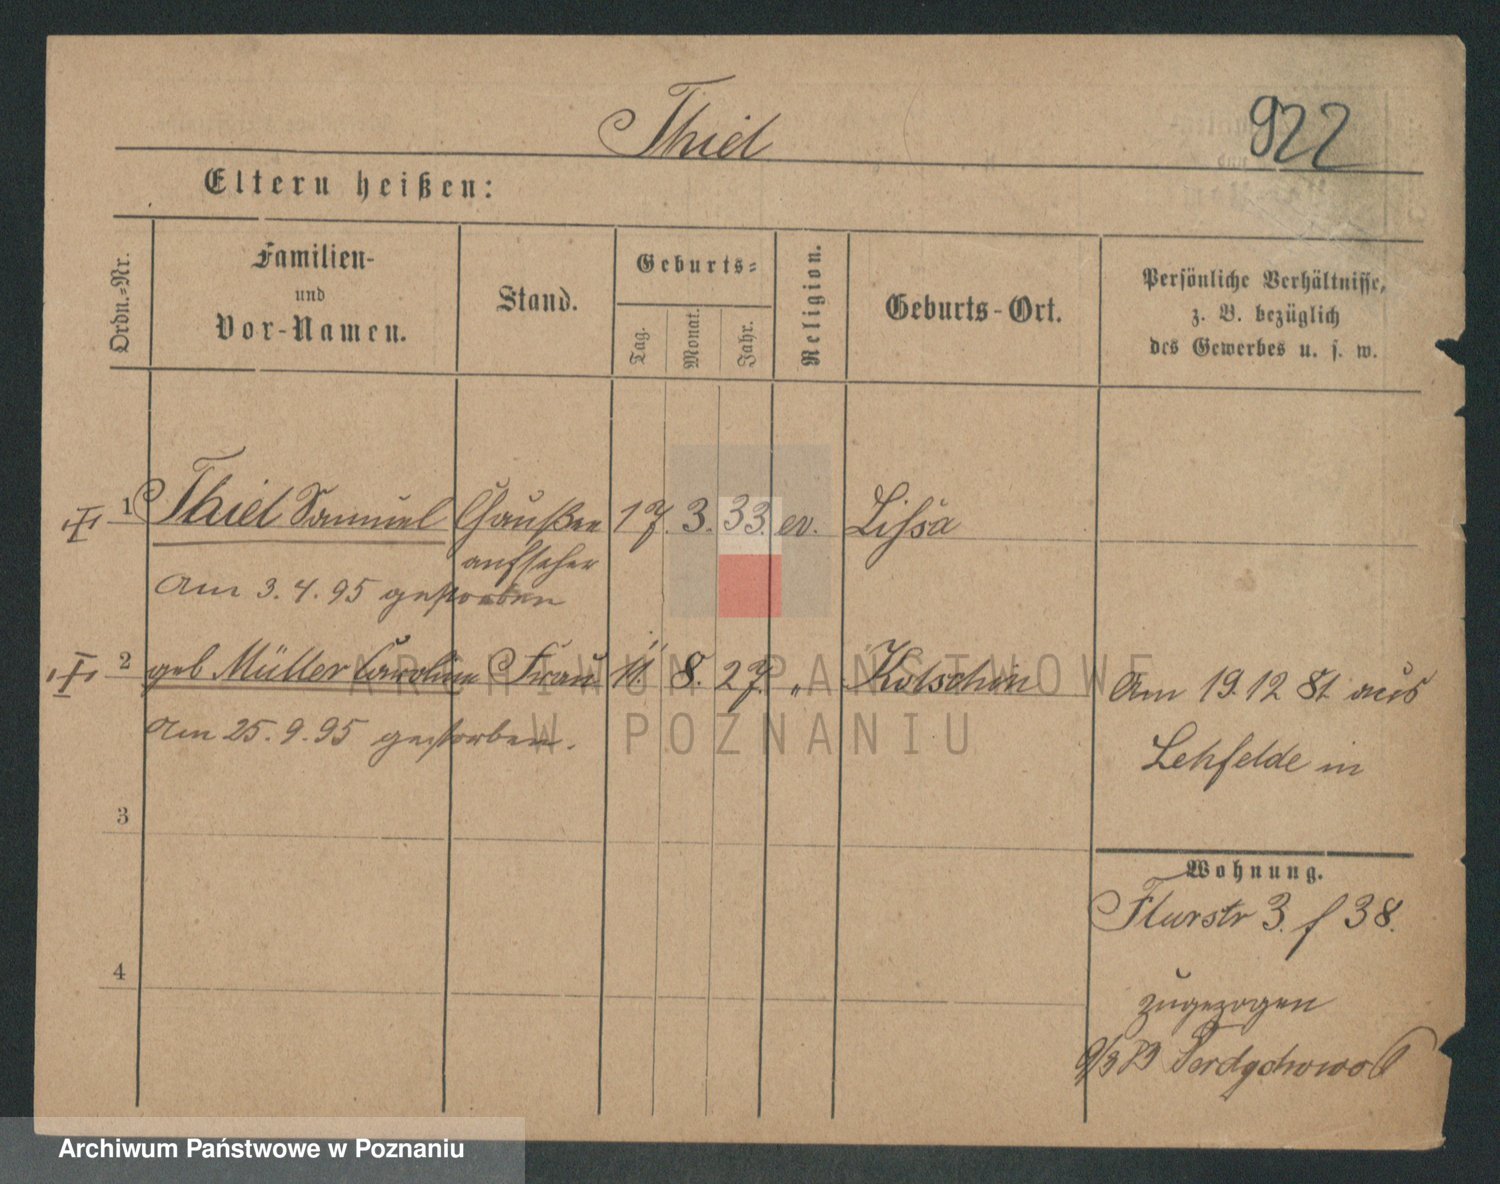 Thiel
922
Eltern heißen:
Ordn.-Nr.
Familien-
und
Vor-Namen.
Stand.
Geburts-
Tag.
Monat.
Jahr.
Religion.
Geburts-Ort.
Persönliche Verhältnisse,
z. B. bezüglich
des Gewerbes u. s. w.
1 Thiel Samuel Chaußee 17. 3. 33. ev. Lissa
aufseher
am 3. 4. 95 gestorben
2 geb Müller Caroline Frau 11. 8. 27. „ Kotschin
am 25. 9. 95 gestorben.
Am 19.12 81. aus
Lehfelde in
3
Wohnung.
Flurstr 3. f 38.
4
zugezogen
ARCHIWUM PAŃSTWOWE
W POZNANIU
Archiwum Państwowe w Poznaniu